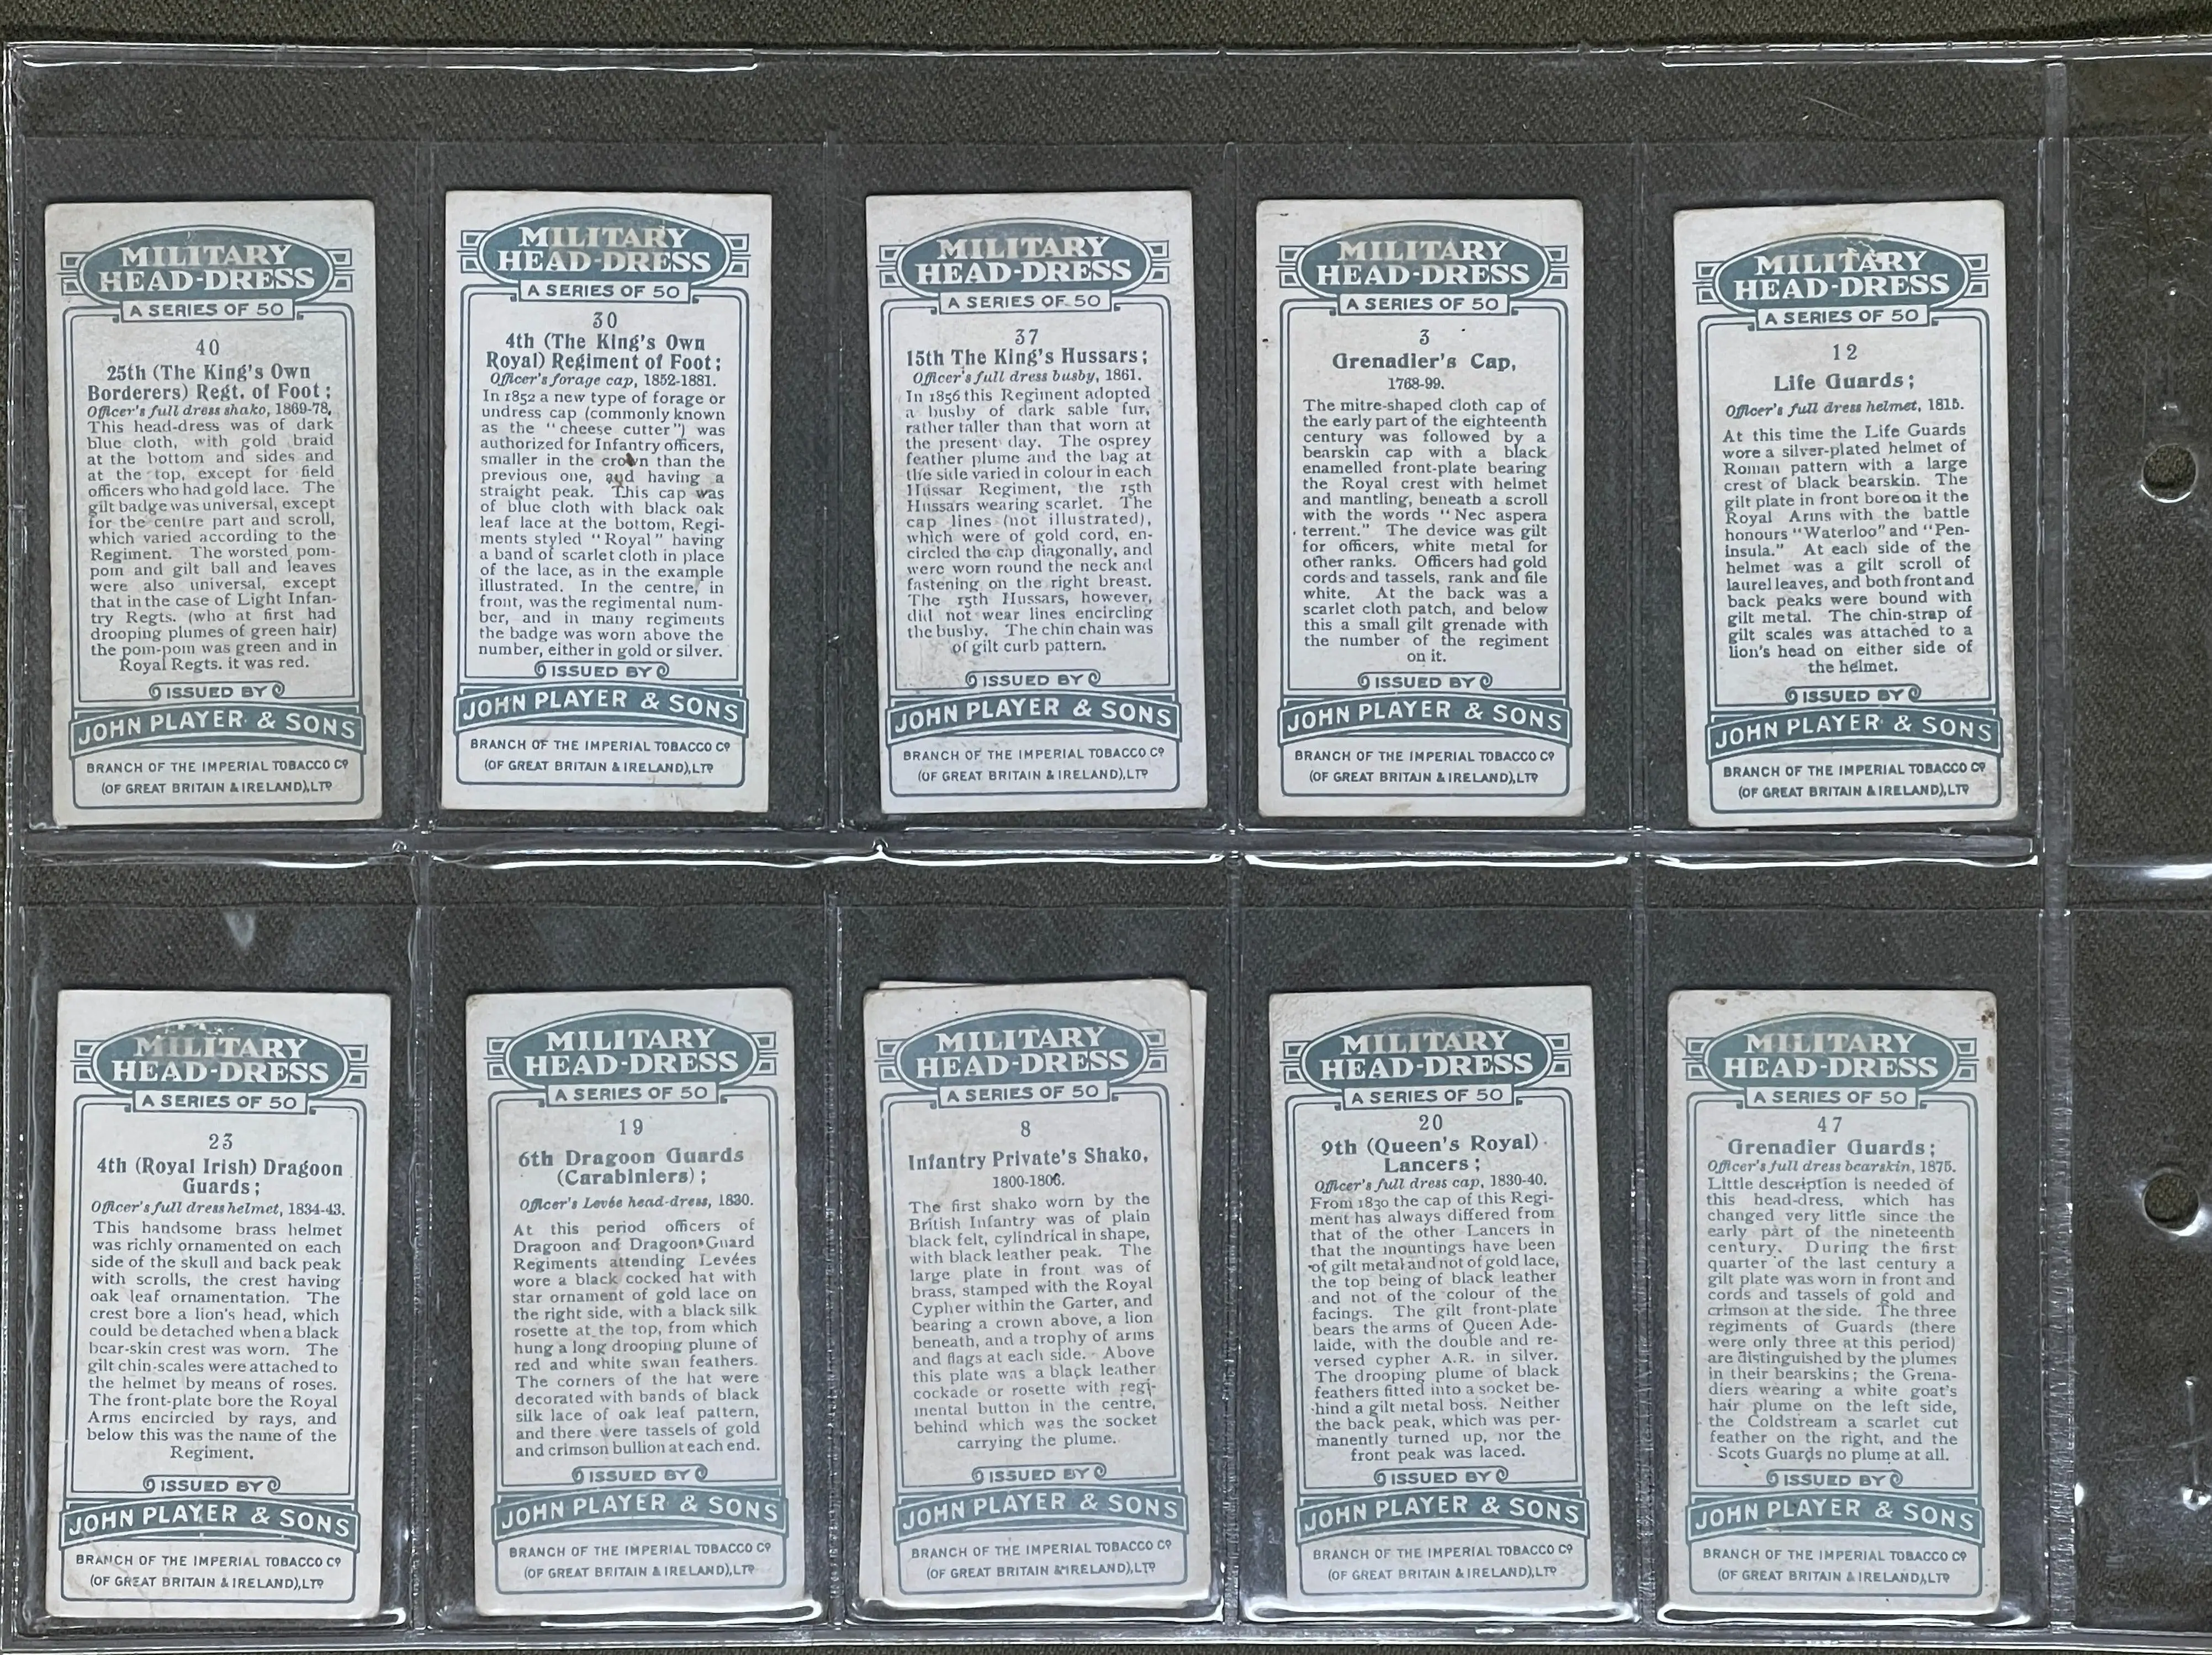 MILITARY
HEAD-DRESS
A SERIES OF 50
40
25th (The King's Own
Borderers) Regt. of Foot;
Officer's full dress shako, 1869-78.
This head-dress was of dark
blue cloth, with gold braid
at the bottom and sides and
at the top, except for field
officers who had gold lace. The
gilt badge was universal, except
for the centre part and scroll,
which varied according to the
Regiment. The worsted pom-
pom and gilt ball and leaves
were also universal, except
that in the case of Light Infan-
try Regts. (who at first had
drooping plumes of green hair)
the pom-pom was green and in
Royal Regts. it was red.
ISSUED BY
JOHN PLAYER & SONS
BRANCH OF THE IMPERIAL TOBACCO CO
(OF GREAT BRITAIN & IRELAND), LTD
MILITARY
HEAD-DRESS
A SERIES OF 50
30
4th (The King's Own
Royal) Regiment of Foot;
Officer's forage cap, 1852-1881.
In 1852 a new type of forage or
undress cap (commonly known
as the "cheese cutter") was
authorized for Infantry officers,
smaller in the crown than the
previous one, and having a
straight peak. This cap was
of blue cloth with black oak
leaf lace at the bottom, Regi-
ments styled "Royal" having
a band of scarlet cloth in place
of the lace, as in the example
illustrated. In the centre, in
front, was the regimental num-
ber, and in many regiments
the badge was worn above the
number, either in gold or silver.
ISSUED BY
JOHN PLAYER & SONS
BRANCH OF THE IMPERIAL TOBACCO CO
(OF GREAT BRITAIN & IRELAND), LTD
MILITARY
HEAD-DRESS
A SERIES OF 50
37
15th The King's Hussars;
Officer's full dress busby, 1861.
In 1856 this Regiment adopted
a busby of dark sable fur,
rather taller than that worn at
the present day. The osprey
feather plume and the bag at
the side varied in colour in each
Hussar Regiment, the 15th
Hussars wearing scarlet. The
cap lines (not illustrated),
which were of gold cord, en-
circled the cap diagonally, and
were worn round the neck and
fastening on the right breast.
The 15th Hussars, however,
did not wear lines encircling
the busby. The chin chain was
of gilt curb pattern.
ISSUED BY
JOHN PLAYER & SONS
BRANCH OF THE IMPERIAL TOBACCO CO
(OF GREAT BRITAIN & IRELAND), LTD
MILITARY
HEAD-DRESS
A SERIES OF 50
3
Grenadier's Cap,
1768-99.
The mitre-shaped cloth cap of
the early part of the eighteenth
century was followed by a
bearskin cap with a black
enamelled front-plate bearing
the Royal crest with helmet
and mantling, beneath a scroll
with the words "Nec aspera
terrent." The device was gilt
for officers, white metal for
other ranks. Officers had gold
cords and tassels, rank and file
white. At the back was a
scarlet cloth patch, and below
this a small gilt grenade with
the number of the regiment
on it.
ISSUED BY
JOHN PLAYER & SONS
BRANCH OF THE IMPERIAL TOBACCO CO
(OF GREAT BRITAIN & IRELAND), LTD
MILITARY
HEAD-DRESS
A SERIES OF 50
12
Life Guards;
Officer's full dress helmet, 1815.
At this time the Life Guards
wore a silver-plated helmet of
Roman pattern with a large
crest of black bearskin. The
gilt plate in front bore on it the
Royal Arms with the battle
honours "Waterloo" and "Pen-
insula." At each side of the
helmet was a gilt scroll of
laurel leaves, and both front and
back peaks were bound with
gilt metal. The chin-strap of
gilt scales was attached to a
lion's head on either side of
the helmet.
ISSUED BY
JOHN PLAYER & SONS
BRANCH OF THE IMPERIAL TOBACCO CO
(OF GREAT BRITAIN & IRELAND), LTD
MILITARY
HEAD-DRESS
A SERIES OF 50
23
4th (Royal Irish) Dragoon
Guards;
Officer's full dress helmet, 1834-43.
This handsome brass helmet
was richly ornamented on each
side of the skull and back peak
with scrolls, the crest having
oak leaf ornamentation. The
crest bore a lion's head, which
could be detached when a black
bear-skin crest was worn. The
gilt chin-scales were attached to
the helmet by means of roses.
The front-plate bore the Royal
Arms encircled by rays, and
below this was the name of the
Regiment.
ISSUED BY
JOHN PLAYER & SONS
BRANCH OF THE IMPERIAL TOBACCO CO
(OF GREAT BRITAIN & IRELAND), LTD
MILITARY
HEAD-DRESS
A SERIES OF 50
19
6th Dragoon Guards
(Carabiniers);
Officer's Levée head-dress, 1830.
At this period officers of
Dragoon and Dragoon Guard
Regiments attending Levées
wore a black cocked hat with
star ornament of gold lace on
the right side, with a black silk
rosette at the top, from which
hung a long drooping plume of
red and white swan feathers.
The corners of the hat were
decorated with bands of black
silk lace of oak leaf pattern,
and there were tassels of gold
and crimson bullion at each end.
ISSUED BY
JOHN PLAYER & SONS
BRANCH OF THE IMPERIAL TOBACCO CO
(OF GREAT BRITAIN & IRELAND), LTD
MILITARY
HEAD-DRESS
A SERIES OF 50
8
Infantry Private's Shako,
1800-1806.
The first shako worn by the
British Infantry was of plain
black felt, cylindrical in shape,
with black leather peak. The
large plate in front was of
brass, stamped with the Royal
Cypher within the Garter, and
bearing a crown above, a lion
beneath, and a trophy of arms
and flags at each side. Above
this plate was a black leather
cockade or rosette with regi-
mental button in the centre,
behind which was the socket
carrying the plume.
ISSUED BY
JOHN PLAYER & SONS
BRANCH OF THE IMPERIAL TOBACCO CO
(OF GREAT BRITAIN & IRELAND), LTD
MILITARY
HEAD-DRESS
A SERIES OF 50
20
9th (Queen's Royal)
Lancers;
Officer's full dress cap, 1830-40.
From 1830 the cap of this Regi-
ment has always differed from
that of the other Lancers in
that the mountings have been
of gilt metal and not of gold lace,
the top being of black leather
and not of the colour of the
facings. The gilt front-plate
bears the arms of Queen Ade-
laide, with the double and re-
versed cypher A.R. in silver.
The drooping plume of black
feathers fitted into a socket be-
hind a gilt metal boss. Neither
the back peak, which was per-
manently turned up, nor the
front peak was laced.
ISSUED BY
JOHN PLAYER & SONS
BRANCH OF THE IMPERIAL TOBACCO CO
(OF GREAT BRITAIN & IRELAND), LTD
MILITARY
HEAD-DRESS
A SERIES OF 50
47
Grenadier Guards;
Officer's full dress bearskin, 1875.
Little description is needed of
this head-dress, which has
changed very little since the
early part of the nineteenth
century. During the first
quarter of the last century a
gilt plate was worn in front and
cords and tassels of gold and
crimson at the side. The three
regiments of Guards (there
were only three at this period)
are distinguished by the plumes
in their bearskins; the Grena-
diers wearing a white goat's
hair plume on the left side,
the Coldstream a scarlet cut
feather on the right, and the
Scots Guards no plume at all.
ISSUED BY
JOHN PLAYER & SONS
BRANCH OF THE IMPERIAL TOBACCO CO
(OF GREAT BRITAIN & IRELAND), LTD